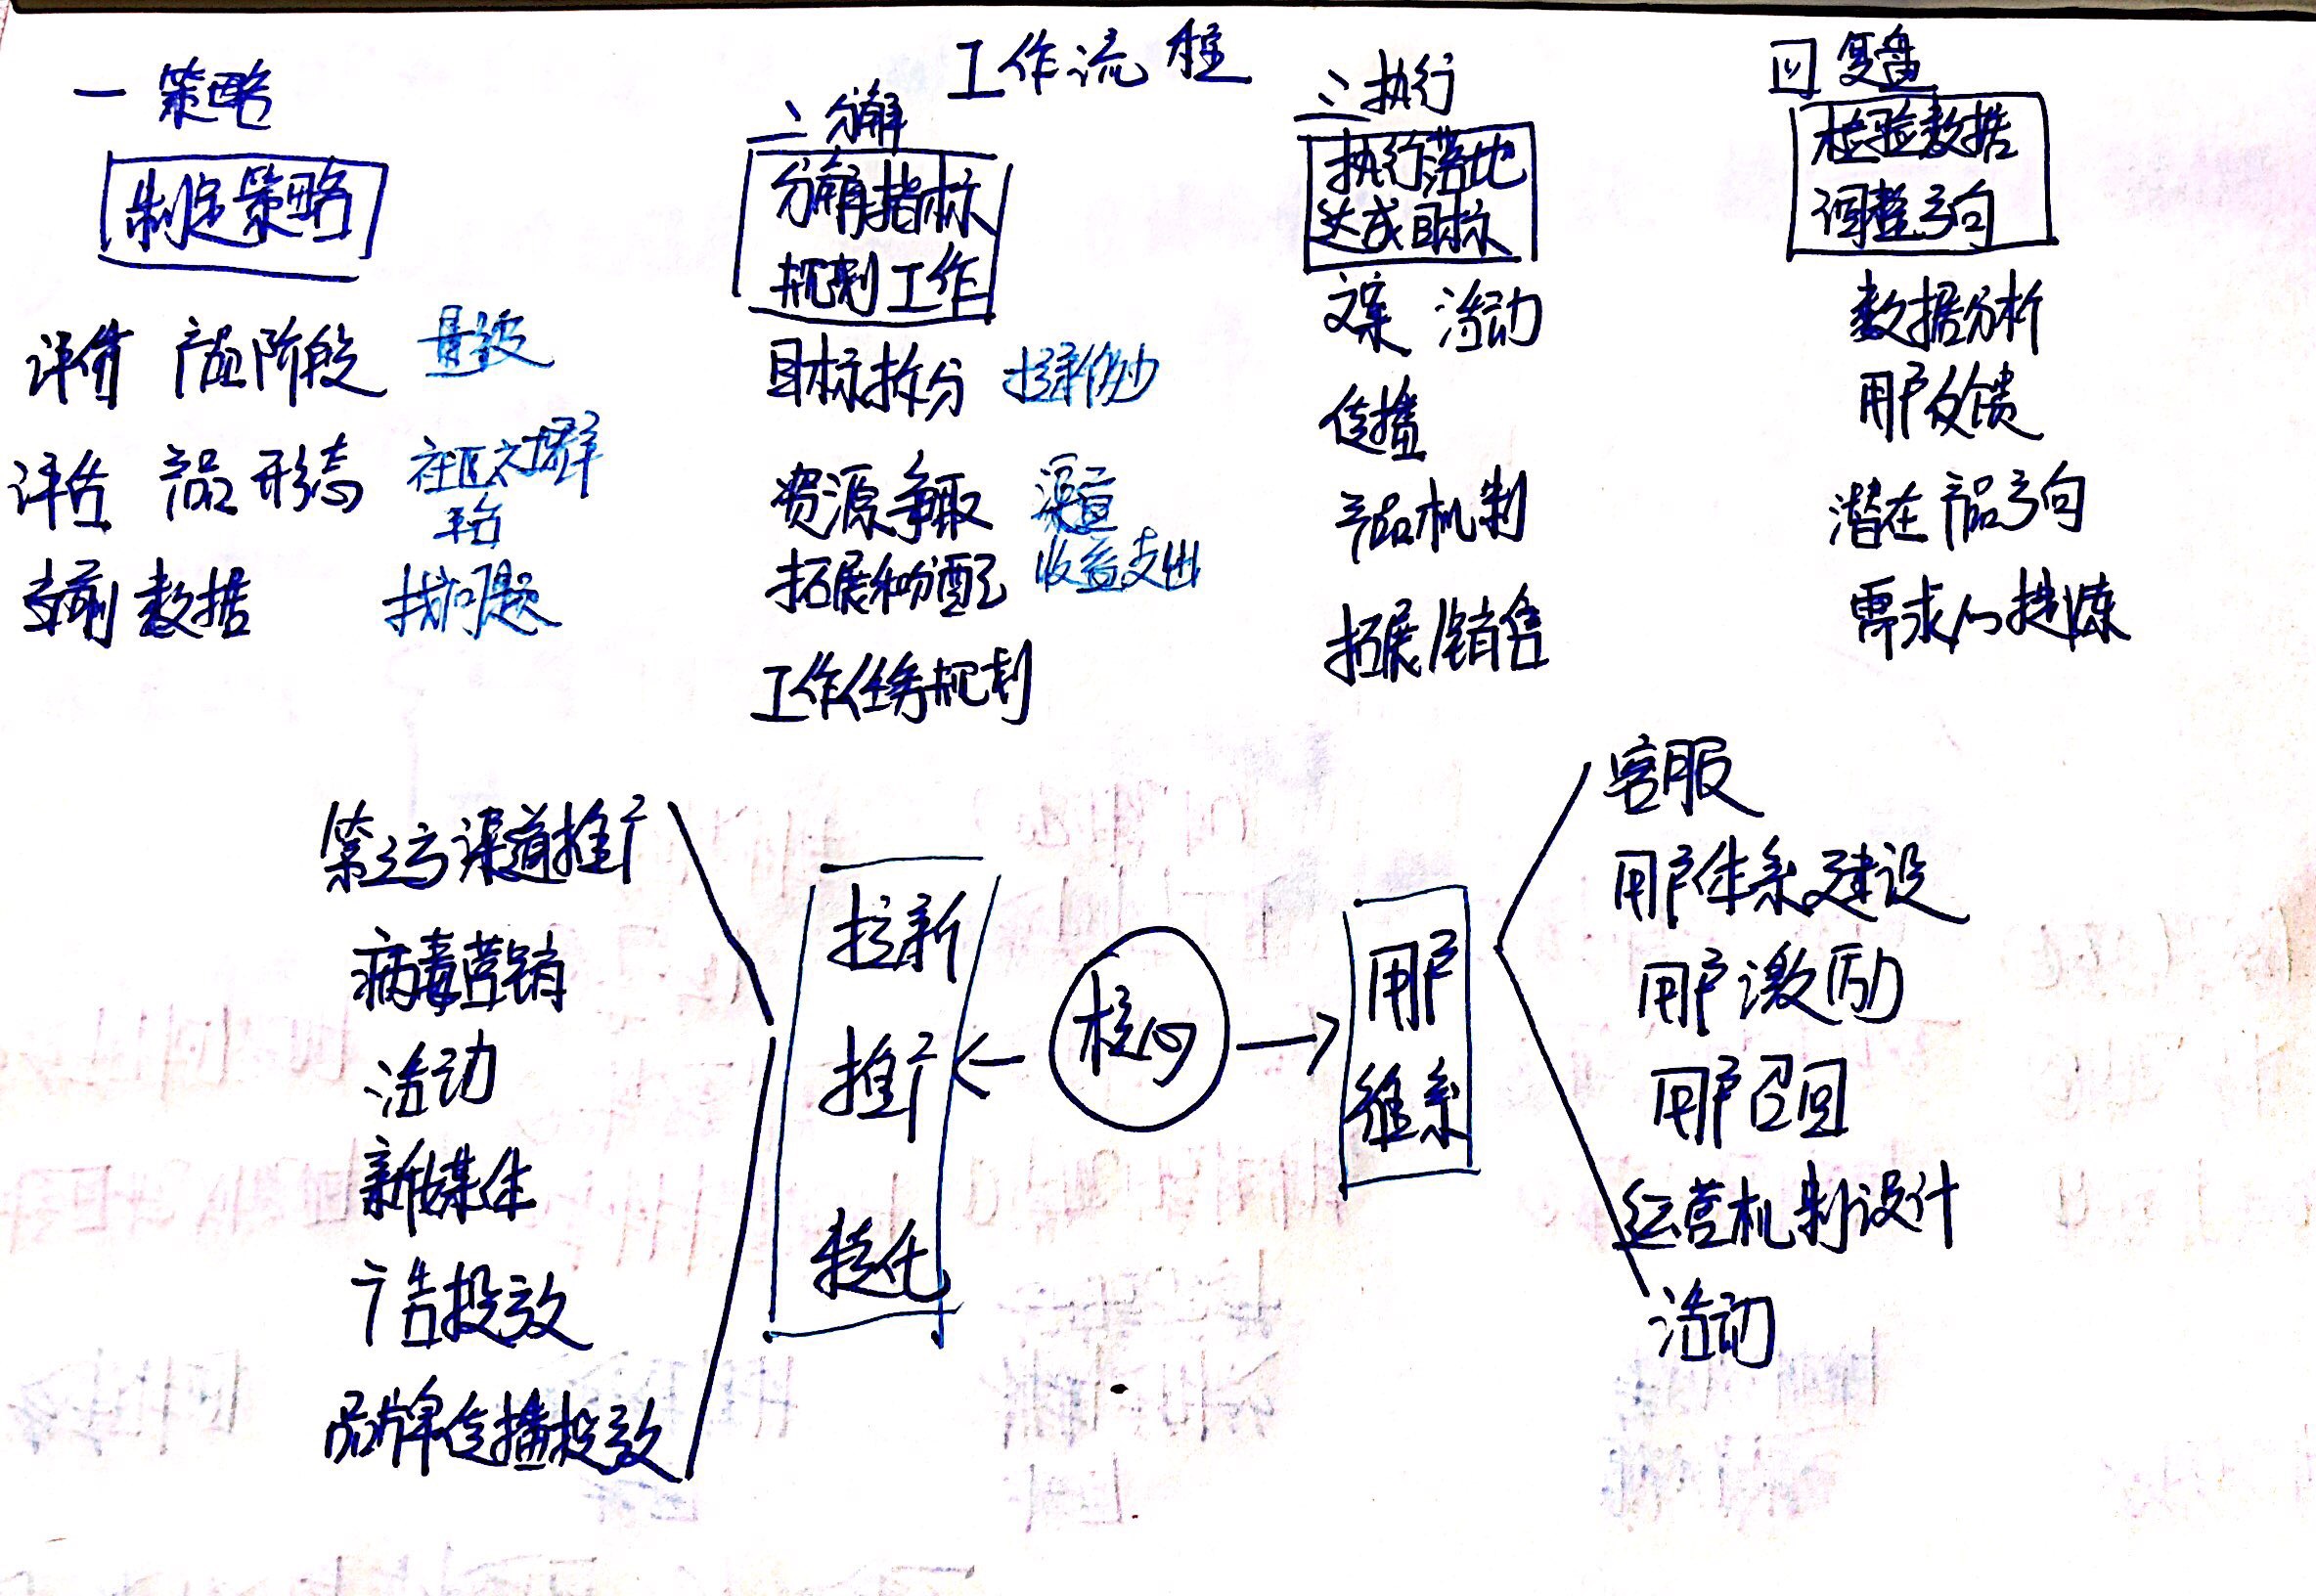 工作流程
一 策略
制定策略
评估 产品阶段 量级
评估 产品形态 社区
平台
数据 找问题
二 分解
分解指标
规划工作
目标拆分
资源争取 渠道
拓展和分配 收益支出
工作任务规划
三 执行
执行落地
达成目标
文案 活动
传播
产品机制
拓展/销售
四 复盘
检验数据
调整方向
数据分析
用户反馈
潜在产品方向
需求的提炼
第三方渠道推广
病毒营销
活动
新媒体
广告投放
品牌传播投放
拉新
推广
转化
核心
用户
维系
客服
用户体系建设
用户激励
用户召回
运营机制设计
活动